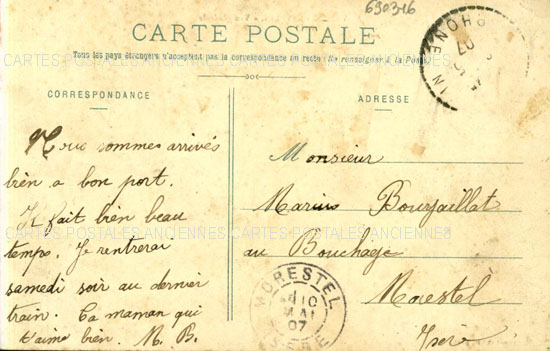 690316
CARTE POSTALE
Tous les pays étrangers n'acceptent pas la correspondance au recto (Se renseigner à la Poste)
CORRESPONDANCE
ADRESSE
Nous sommes arrivés
bien a bon port.
Il fait bien beau
temps. Je rentrerai
samedi soir au dernier
train. Ta maman qui
t'aime bien. M. B.
Monsieur
Marius Bourjaillat
au Bouchage
Morestel
Isère
RHONE
07
MORESTEL
10
MAI
07
ISERE
CARTES POSTALES ANCIENNES CARTES POSTALES ANCIENNES
CARTES POSTALES ANCIENNES CARTES POSTALES ANCIENNES